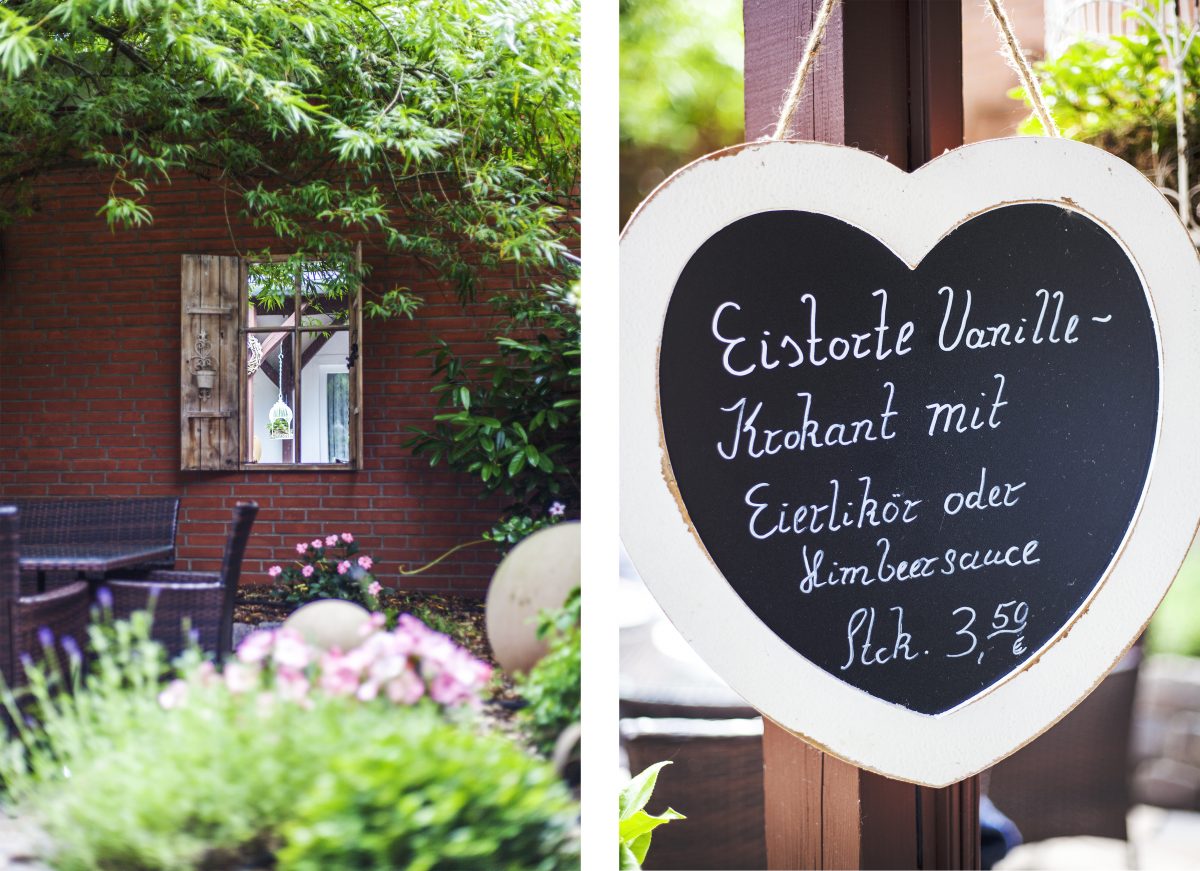 Eistorte Vanille-
Krokant mit
Eierlikör oder
Himbeersauce
Stck. 3,50 €